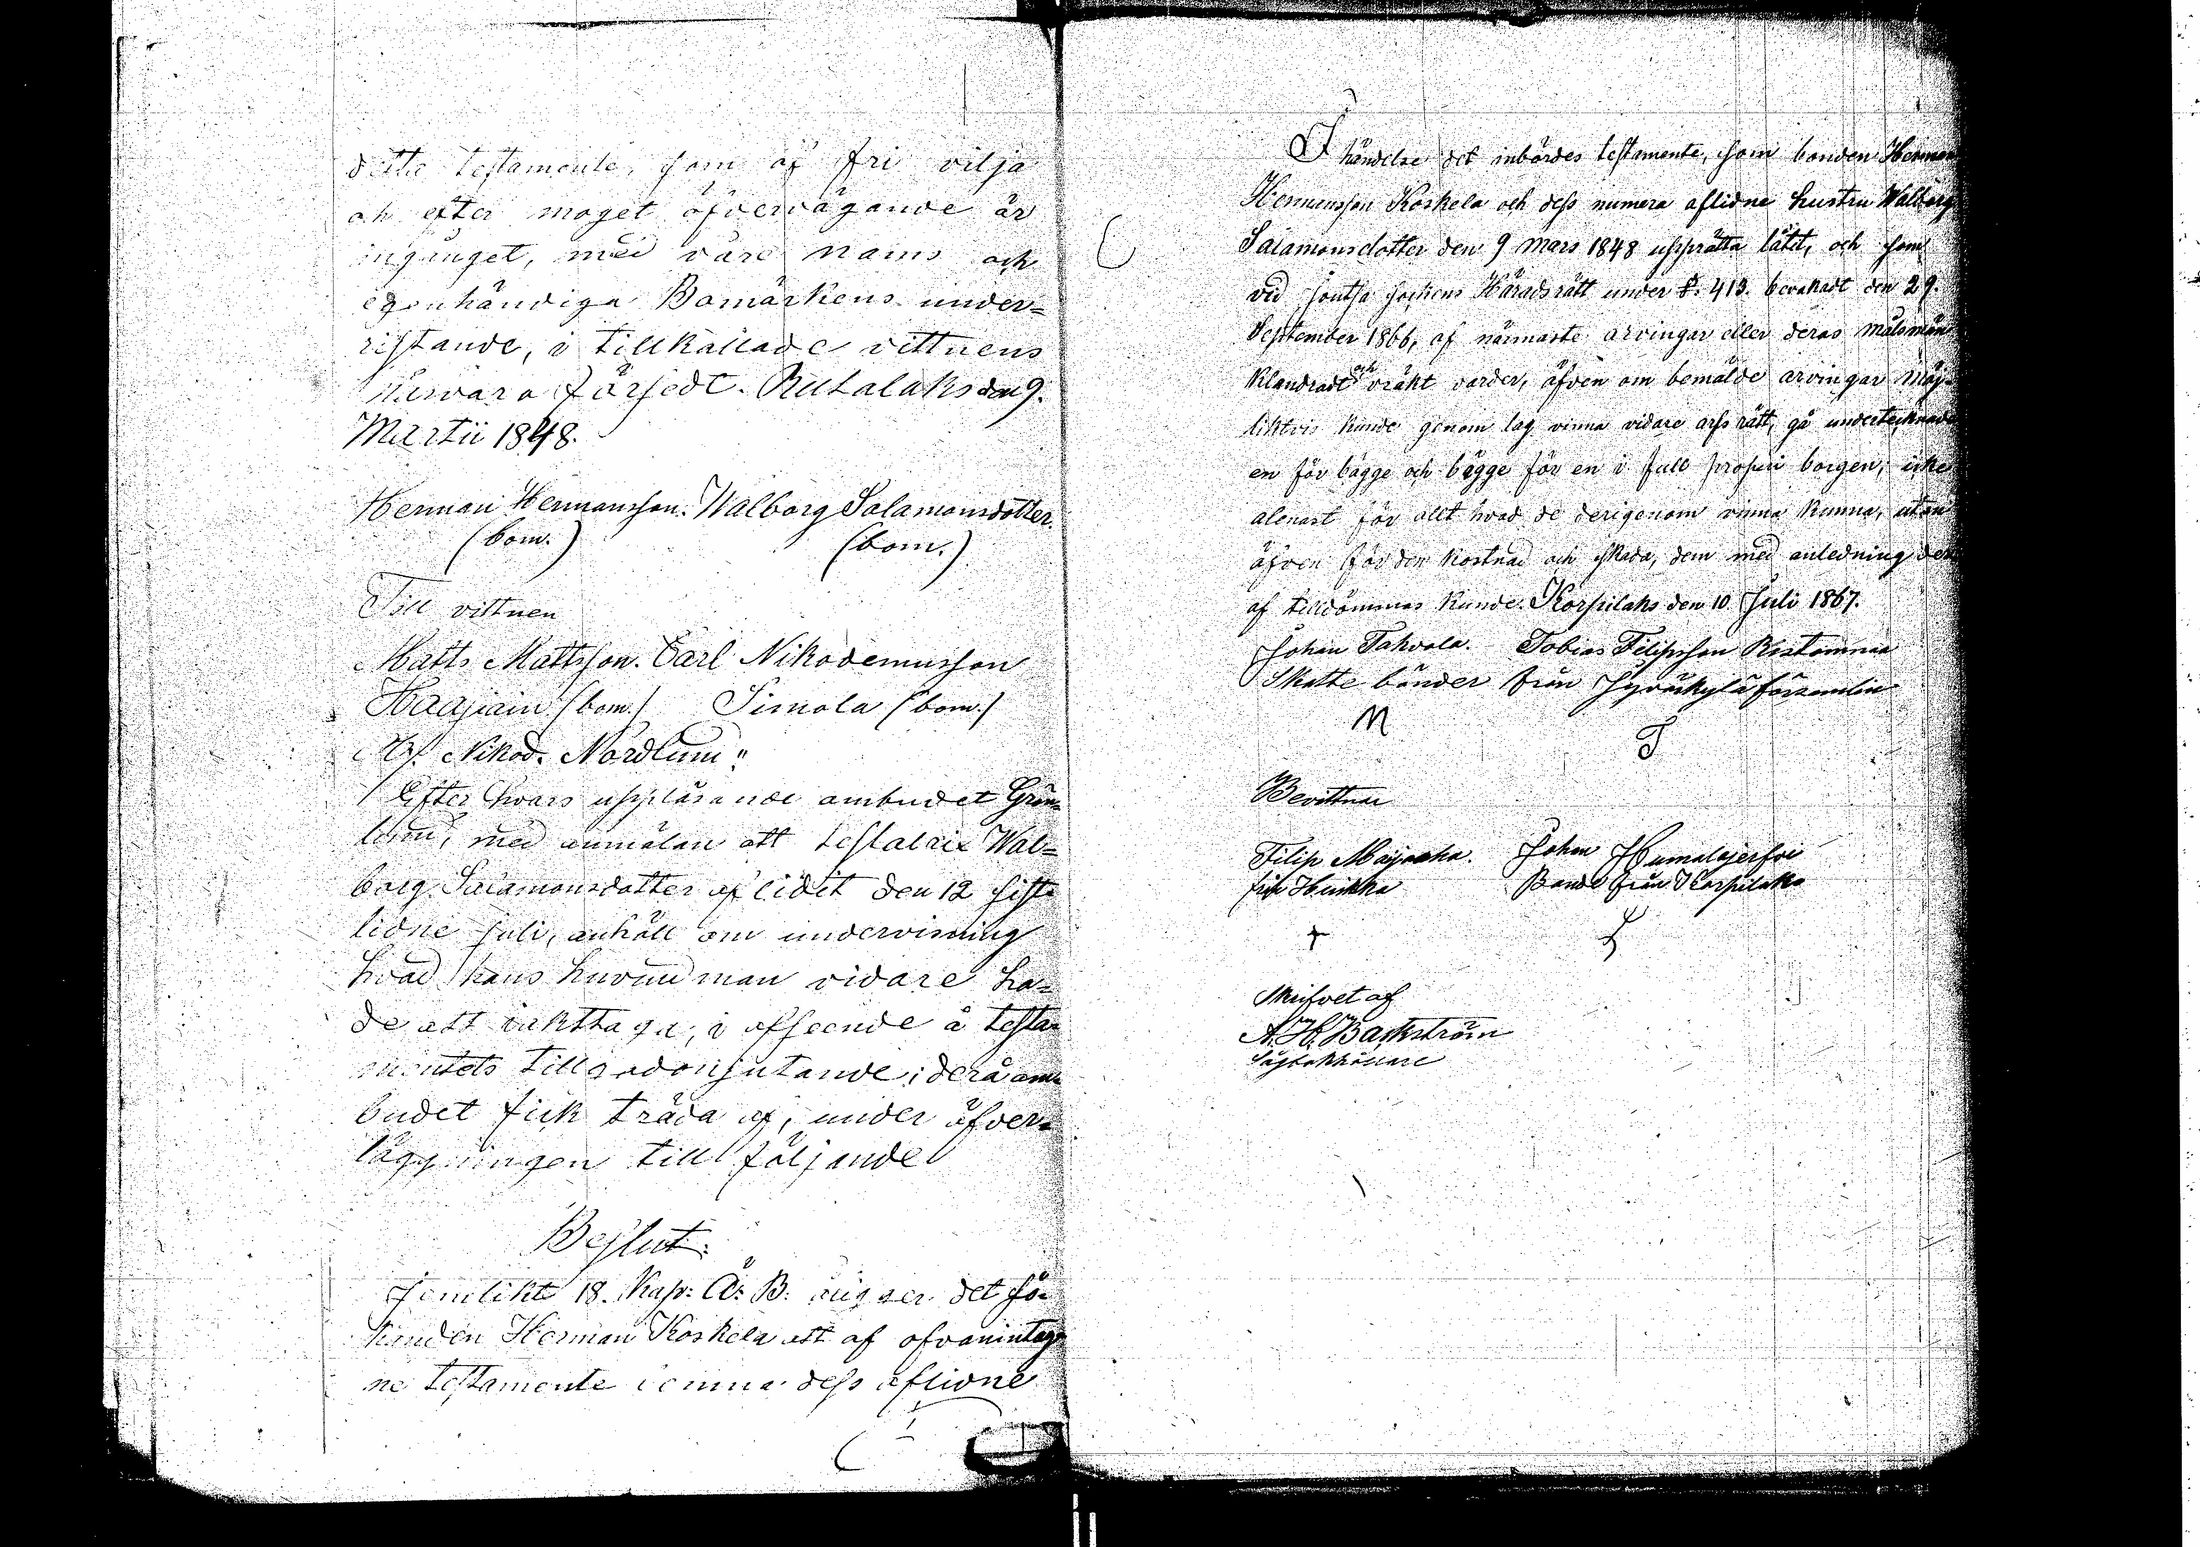 detta testamente, som af fri vilja
och efter moget öfvervägande är
ingånget, med våre namns och
egenhändiga Bomärkens under=
ristande, i tillkallade vittnens
närvaro försedt. Rutalaks den 9.
Martii 1848.
Herman Hermansson. Walborg Salamonsdotter.
(bom.) (bom.)
Till vittnen
Matts Mattsson. Carl Nikodemusson
Haajiain (bom.) Simola (bom.)
Nikod. Nordlund"
Efter hvars uppläsande ombudet Grön=
lund, med anmälan att testatrix Wal=
borg Salamonsdotter aflidit den 12 sist=
lidne Juli, anhöll om undervisning
hvad hans hufvudman vidare ha=
de att iakttaga, i afseende å testa=
mentets tillgodonjutande; derå om=
budet fick träda af, under öfver=
läggningen till följande
Beslut:
Jemlikt 18. Kap: Ä: B: åligger det sö=
kanden Herman Koskela att af ofvanintag=
ne testamente lemna dess aflidne
I händelse det inbördes testamente, som bonden Herman
Hermansson Koskela och dess numera aflidne hustru Walborg
Salamonsdotter den 9 Mars 1848 upprätta låtit, och som
vid Joutsa sockens Häradsrätt under §. 413. bevakadt den 29.
September 1866, af närmaste arvingar eller deras målsmän
klandradt och vräkt varder, äfven om bemälde arvingar möj=
ligtvis kunde genom lag vinna vidare arfsrätt, gå undertecknade
en för bägge och bägge för en i full proprie borgen, icke
allenast för allt hvad de derigenom vinna kunna, utan
äfven för den kostnad och skada, dem med anledning der
af tilldömmas kunde. Korpilaks den 10 Juli 1867.
Johan Tahvola. Tobias Filipsson Ristamnaa
Skatte bönder från Jyväskylä församlin
M T
Bevittnar
Filip Johan
från Bonde från Korpilaks
Skrifvet af
A. H. Backström